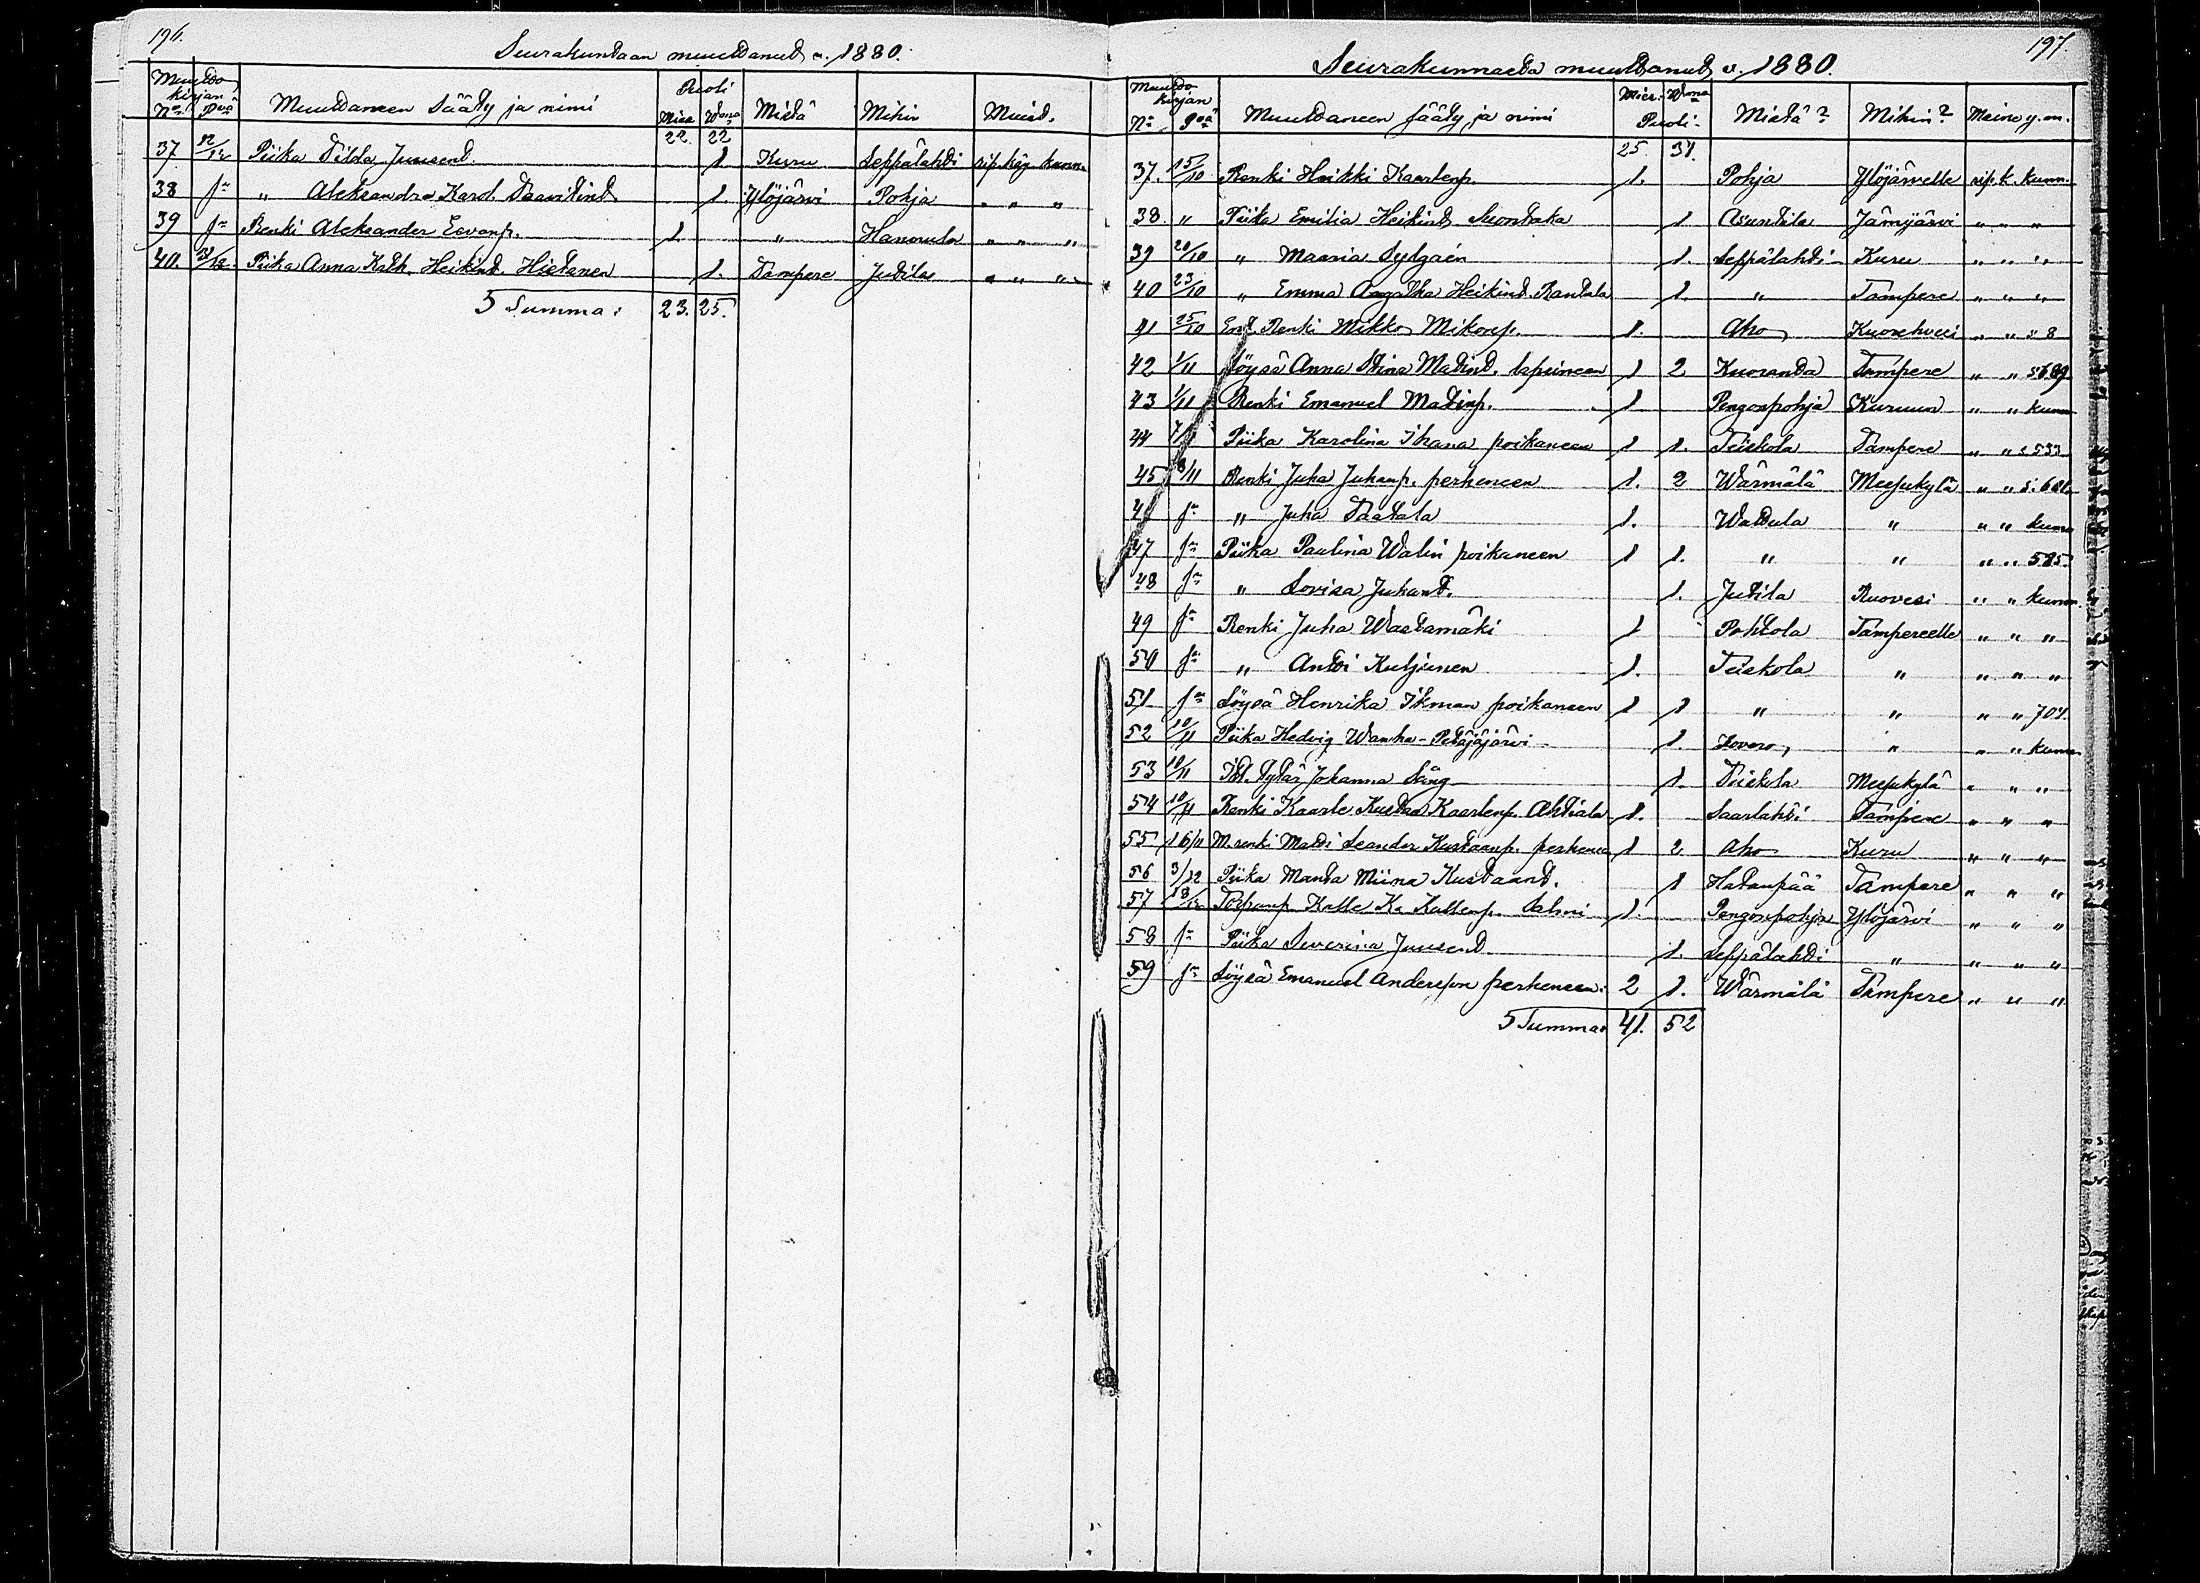 196.
Seurakundaan muuttanut v. 1880.
Muutto kirjan
No Pvä Muuttaneen Sääty ja nimi Puoli Mies Vaim Mistä Mihin Muist.
22. 22
37 12/12 Piika Tilda Juusent. 1. Kuru Seppälahti rip. käy. kunn.
38 sn " Aleksandra Karol. Taavitint. 1. Ylöjärvi Pohja " " "
39 sn Renki Aleksander Eevanp. 1. " " " "
40. Piika Anna Kath. Heikint. Hietanen 1. Tampere Jutila " " "
Summa: 23. 25.
197.
Seurakunnasta muuttanut v. 1880.
Muutto kirjan
No Pvä Muuttaneen sääty ja nimi Mies- Waimo Puoli- Mistä? Mihin? Maine y. m.
25. 31.
37. 15/10 Renki Heikki Kaarlenp. 1. Pohja Ylöjärvelle rip. k. kunn.
38. " Piika Emilia Heikint. 1 Asuntila Jämijärvi " " "
39 20/10 " Maaria 1. Seppälahti Kuru " " "
40 23/10 " Emma Aagatha Heikint. Rantala 1. " Tampere " " "
41 25/10 Ent. Renki Mikko Mikonp. 1. Aho Kuorehvesi " " s 8
42 1/11 Löysä Anna Stina Matint. lapsineen 1 2 Kuoranta Tampere " " s. 689
43 1/11 Renki Emanuel Matinp. 1 Pengonpohja Kuruun " " kunn
44 Piika Karolina Ihana poikaneen 1 1. Teiskola Tampere " " s 533
45 8/11 Renki Juha Juhanp. perheneen 1. 2 Wärmälä Messukylä " " s. 601
46 sn " Juha Taatala 1. Wattula " " " kunn
47 sn Piika Paulina Walin poikaneen 1 1. " " " " 585.
48 sn " Lovisa Juhant. 1. Jutila Ruovesi " " kunn.
49 sn Renki Juha Wastamäki 1 Pohtola Tampereelle " " "
50 sn " Antti Kuljunen 1. Teiskola " " " "
51 sn Löysä Henrika Ikman poikaneen 1 1 " " " " 701.
52 10/11 Piika Hedvig Wanha-Petäjäjärvi 1. Kovero " " " kunn
53 10/11 Itl. Tytär Johanna Lång 1. Teiskola Messukylä " " "
54 10/11 Renki Kaarle Kustaa Kaarlenp. Ahtiala 1. Saarlahti Tampere " " "
55 16/11 M. renki Matti Leander Kustaanp. perheneen 1 2 Aho Kuru " " "
56 3/12 Piika Manta Miina Kustaant. 1 Hatanpää Tampere " " "
57 18/12 Torpanp. Kalle Ka. Kallenp. Salmi 1. Pengonpohja Ylöjärvi " " "
58 sn Piika Severina Juusent 1. Seppälahti " " " "
59 sn Löysä Emanuel Andersson perheneen. 2 1. Wärmälä Tampere " " "
Summa: 41. 52